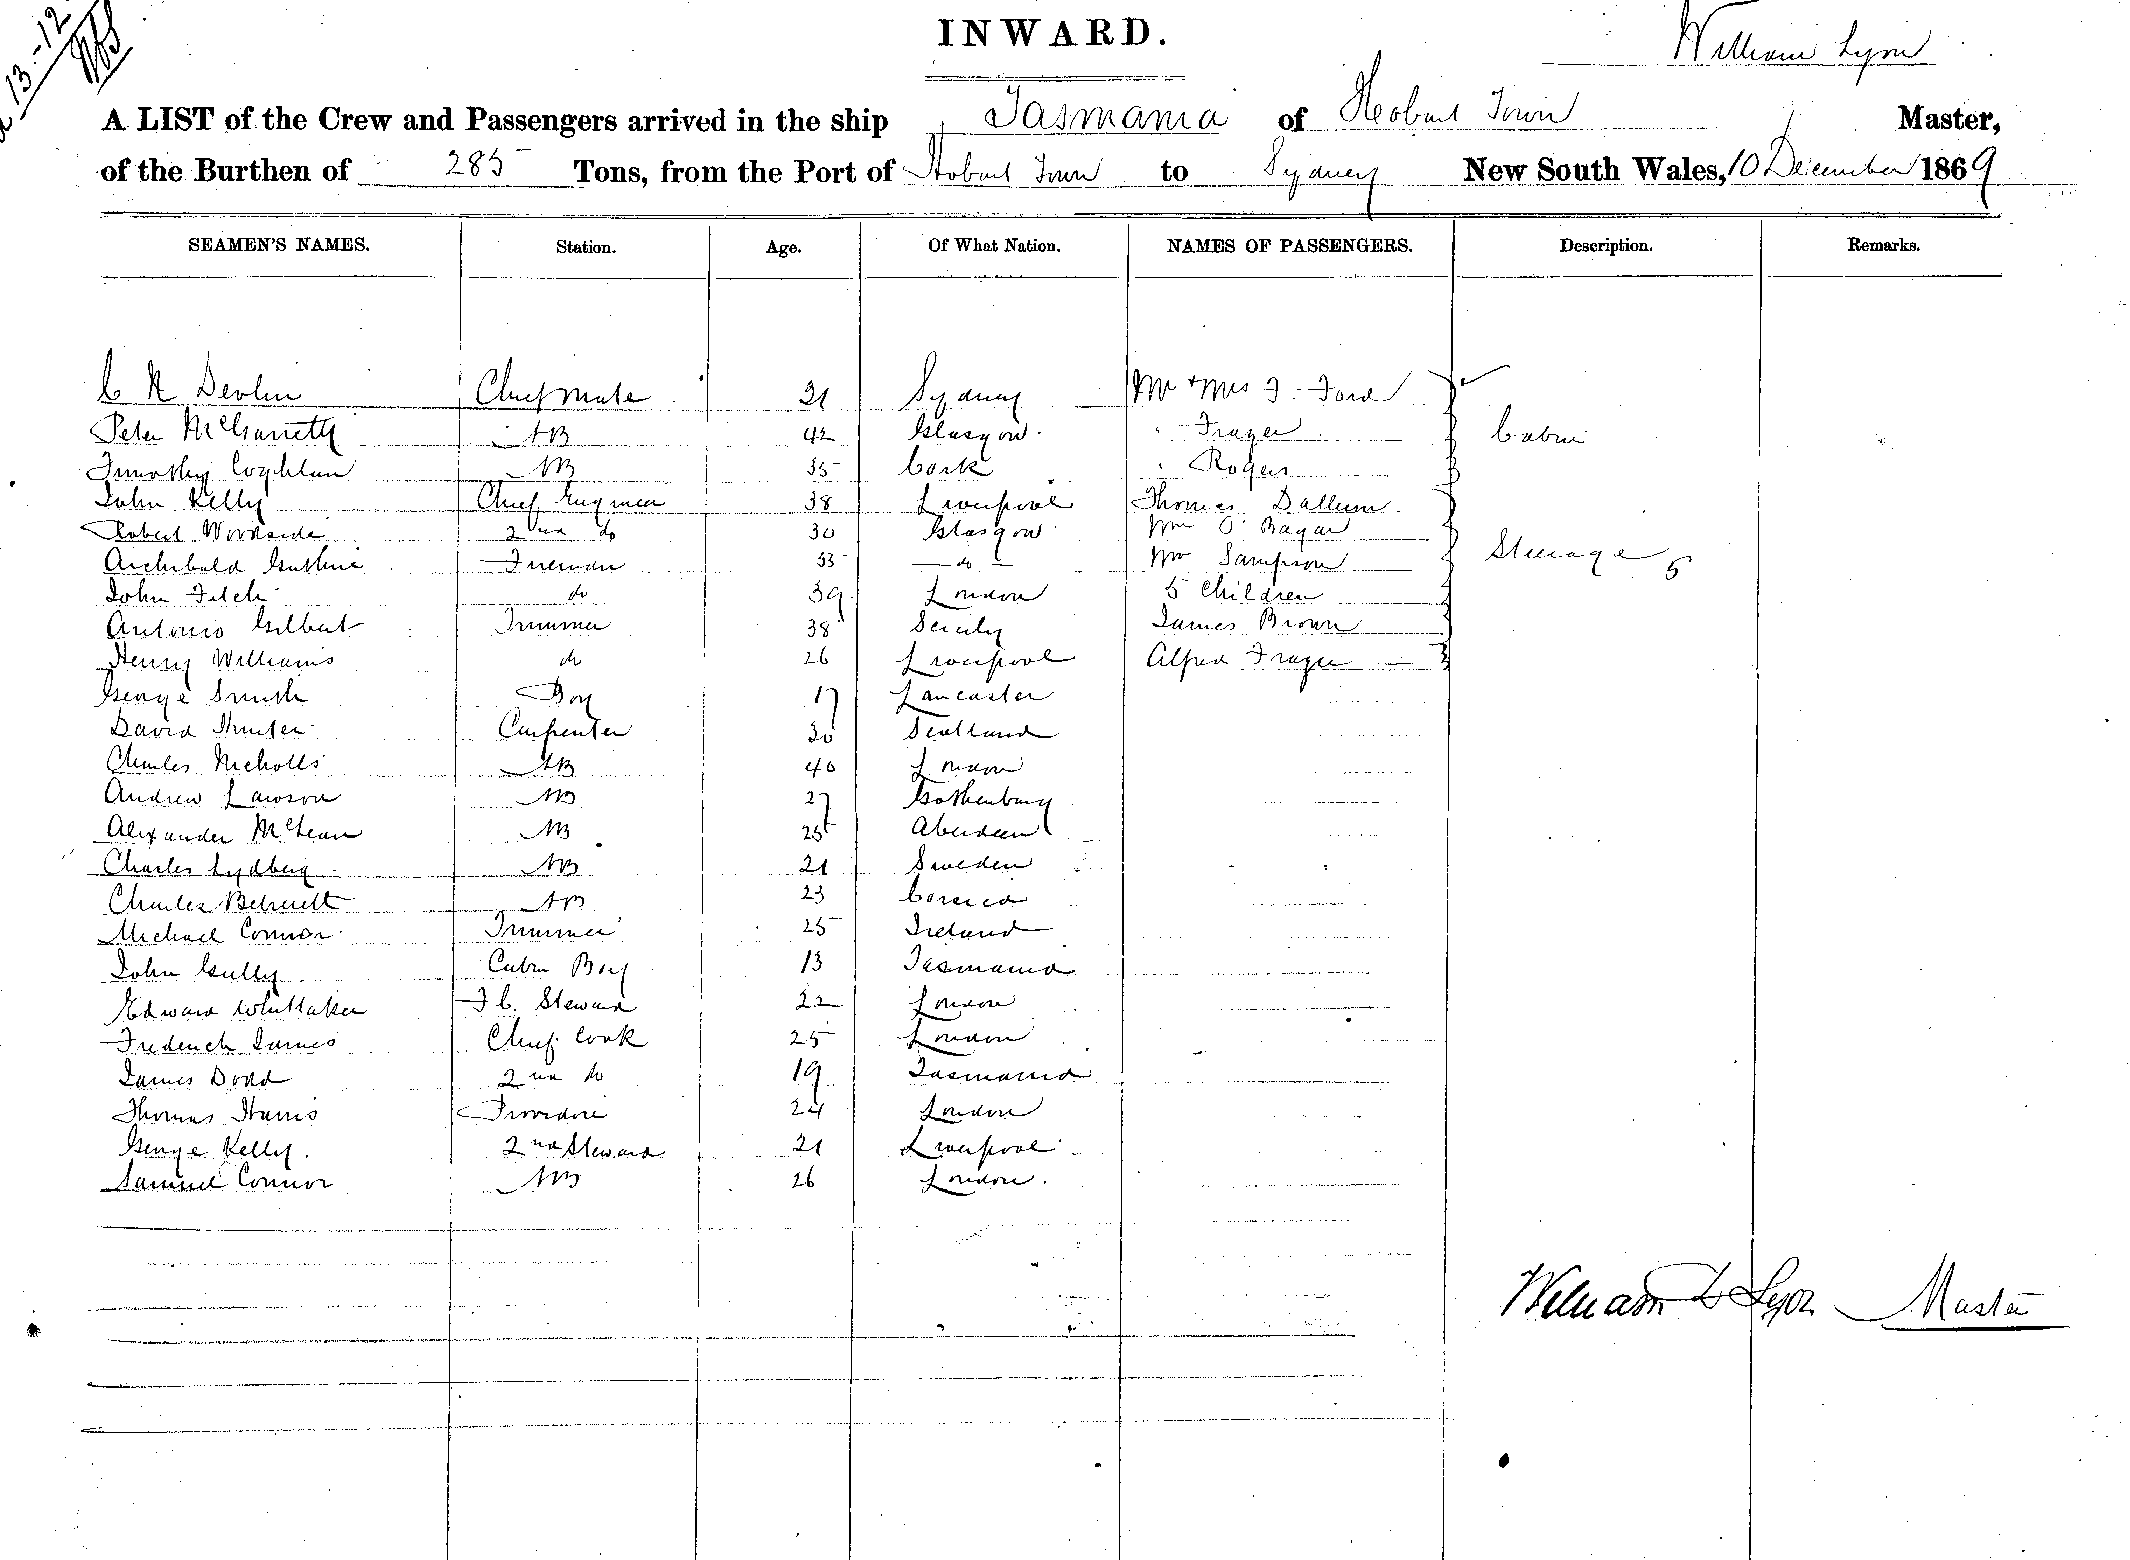 13-12
INWARD.
William Lyon
A LIST of the Crew and Passengers arrived in the ship Tasmania of Hobart Town Master,
of the Burthen of 285 Tons, from the Port of Hobart Town to Sydney New South Wales, 10 December 1869
SEAMEN'S NAMES. Station. Age. Of What Nation. NAMES OF PASSENGERS. Description. Remarks.
C R Devlin Chief Mate 21 Sydney Mr & Mrs F. Ford
Peter McGarrety AB 42 Glasgow. " Frazer Cabin
Timothy Coghlan AB 35 Cork " Rogers
John Kelly Chief Engineer 38 Liverpool Thomas Dallum
Robert Woodside 2nd do 30 Glasgow Wm O'Bagar
Archibald Guthrie Fireman 33 do Mr Sampson Steerage 5
John Fitch do 39 London 5 Children
Antonio Gilbert Trimmer 38 Scicily James Brown
Henry Williams do 26 Liverpool Alfred Frazer
George Smith Boy 17 Lancaster
David Hunter Carpenter 30 Scotland
Charles Nicholls AB 40 London
Andrew Lawson AB 27 Gothenburg
Alexander McLean AB 25 Aberdeen
Charles Lydberg AB 21 Sweden
Charles AB 23 Corsica
Michael Connor Trimmer 25 Ireland
John Gully Cabin Boy 13 Tasmania
Edward Whittaker F C. Steward 22 London
Frederick James Chief Cook 25 London
James Dodd 2nd do 19 Tasmania
Thomas Harris Providore 24 London
George Kelly. 2nd Steward 21 Liverpool
Samuel Connor AB 26 London.
William D Lyon Master